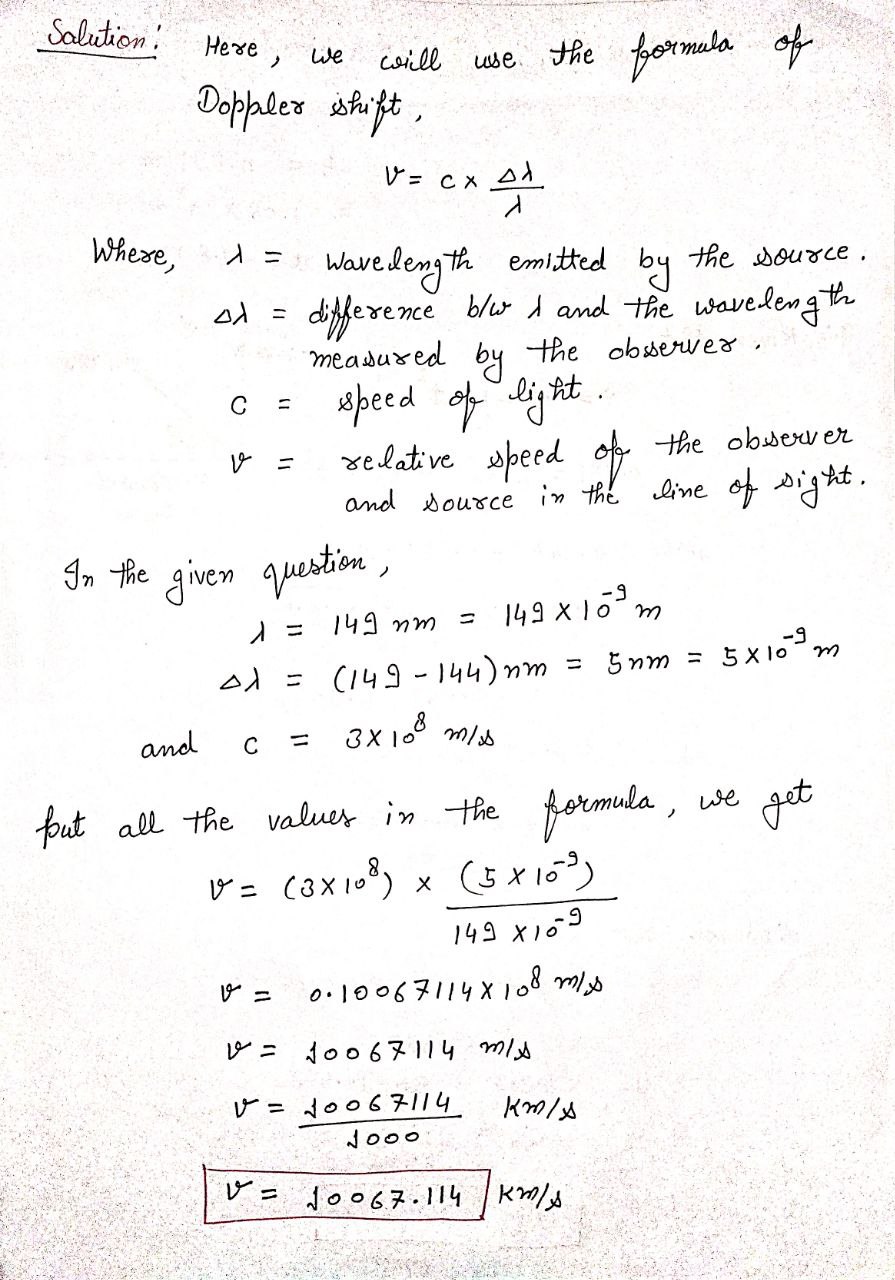 Solution: Here, we will use the formula of
Doppler shift,
v = c x Δλ/λ
Where, λ = Wavelength emitted by the source.
Δλ = difference b/w λ and the wavelength
measured by the observer.
c = speed of light.
v = relative speed of the observer
and source in the line of sight.
In the given question,
λ = 149 nm = 149 X 10⁻⁹ m
Δλ = (149 - 144) nm = 5 nm = 5 X 10⁻⁹ m
and c = 3 X 10⁸ m/s
put all the values in the formula, we get
v = (3X10⁸) x (5 X 10⁻⁹)/149 X10⁻⁹
v = 0.10067114 X 10⁸ m/s
v = 10067114 m/s
v = 10067114/1000 Km/s
v = 10067.114 Km/s